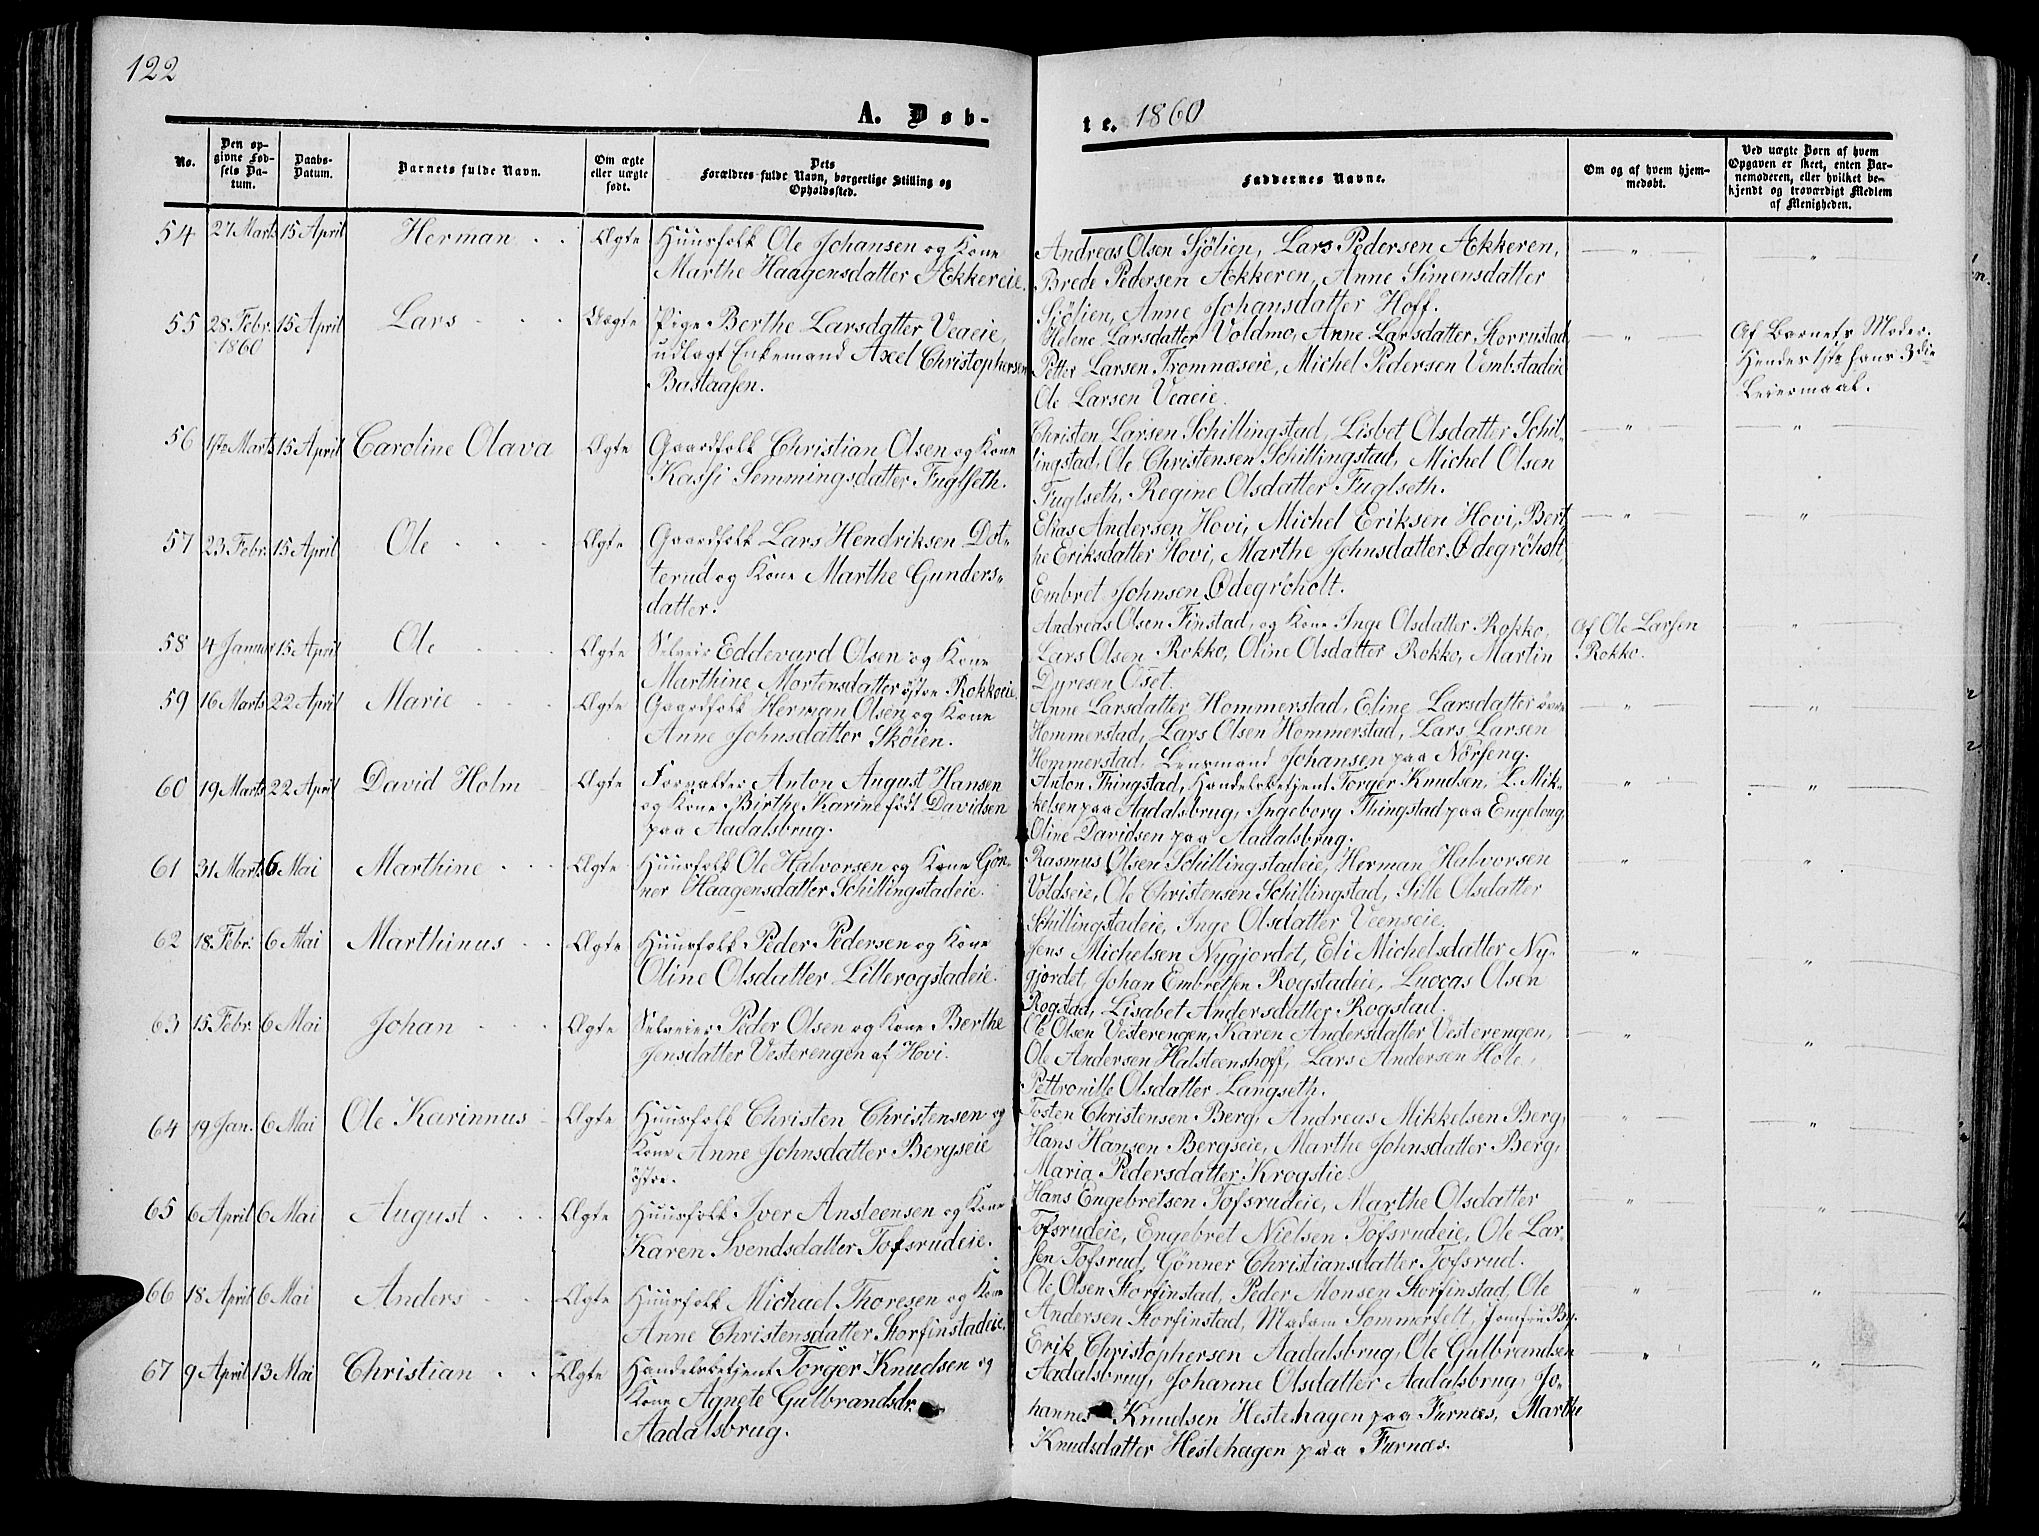 122
A. Døb-
te. 1860
No.
Den op-
givne Fød-
sels Da-
tum.
Daabs-
Datum.
Barnets fulde Navn.
Om ægte
eller uægte
født.
Dets
Forældres fulde Navn, borgerlige Stilling og
Opholdssted.
Faddernes Navne.
Om og af hvem hjem-
medøbt.
Ved uægte Børn af hvem
Opgaven er skeet, enten Bar-
nemoderen, eller hvilket be-
kjendt og troværdigt Medlem
af Menigheden.
54 27 Marts 15 April Herman Ægte Huusfolk Ole Johansen og Kone
Marthe Haagensdatter Ækkereie.
Andreas Olsen Sjölien, Lars Pedersen Ækkeren,
Brede Pedersen Ækkeren, Anne Simensdatter
Sjölien, Anne Johansdatter Hoff.
55 28 Febr. 15 April Lars Uægte Pige Berthe Larsdatter Veaeie,
1860 udlagt Enkemand Axel Christophersen
Bastaasen.
Helene Larsdatter Voldmo, Anne Larsdatter Korrustad,
Petter Larsen Tromnæseie, Michel Pedersen Vembstadeie
Ole Larsen Veaeie.
Af Barnets Moder.
Hendes 1ste hans 3die
Leiermaal.
56 1ste Marts 15 April Caroline Olava Ægte Gaardfolk Christian Olsen og Kone
Kassi Semmingsdatter Fuglseth.
Christen Larsen Schillingstad, Lisbet Olsdatter Schil-
lingstad, Ole Christensen Schillingstad, Michel Olsen
Fuglseth, Regine Olsdatter Fuglseth.
57 23 Febr. 15 April Ole Ægte Gaardfolk Lars Hendriksen Dot-
terud og Kone Marthe Gunders-
datter.
Elias Andersen Hovi, Michel Eriksen Hovi, Bert-
he Eriksdatter Hovi, Marthe Johnsdatter Ødegröholt,
Embret Johnsen Ødegröholt.
58 4 Januar 15 April Ole Ægte Selveier Eddevard Olsen og Kone
Marthine Mortensdatter östre Rokkoeie.
Andreas Olsen Finstad, og Kone Inge Olsdatter Rokko,
Lars Olsen Rokko, Oline Olsdatter Rokko, Martin
Dyresen Oset.
Af Ole Larsen
Rokko.
59 16 Marts 22 April Marie Ægte Gaardfolk Herman Olsen og Kone
Anne Johnsdatter Skøien.
Anne Larsdatter Hommerstad, Eline Larsdatter övre
Hommerstad, Lars Olsen Hommerstad, Lars Larsen
Hommerstad, Lensmand Johansen paa Nörseng.
60 19 Marts 22 April David Holm Ægte Forvalter Anton August Hansen
og Kone Birthe Karine født Davidsen
paa Aadalsbrug.
Anton Thingstad, Handelsbetjent Torger Knudsen, L. Mik-
kelsen paa Aadalsbrug, Ingeborg Thingstad paa Engelong
Oline Davidsen paa Aadalsbrug.
61 31 Marts 6 Mai Marthine Ægte Huusfolk Ole Halvorsen og Kone Gön-
ner Haagensdatter Schillingstadeie.
Rasmus Olsen Schillingstadeie, Herman Halvorsen
Voldseie, Ole Christensen Schillingstad, Sille Olsdatter
Schillingstadeie, Inge Olsdatter Veenseie.
62 18 Febr. 6 Mai Marthinus Ægte Huusfolk Peder Pedersen og Kone
Oline Olsdatter Lillerogstadeie.
Jens Michelsen Nygjordet, Eli Michelsdatter Ny-
gjordet, Johan Embretsen Rogstadeie, Luccas Olsen
Rogstad, Lisabet Andersdatter Rogstad.
63 15 Febr. 6 Mai Johan Ægte Selveier Peder Olsen og Kone Berthe
Jensdatter Vesterengen af Hovi.
Ole Olsen Vesterengen, Karen Andersdatter Vesterengen,
Ole Andersen Halsteenshoff, Lars Andersen Hole,
Pettronille Olsdatter Langseth.
64 19 Jan. 6 Mai Ole Karinnus Ægte Huusfolk Christen Christensen og
Kone Anne Johnsdatter Bergseie
östre.
Tosten Christensen Berg, Andreas Mikkelsen Berg,
Hans Hansen Bergseie, Marthe Johnsdatter Berg,
Maria Pedersdatter Krogstie.
65 6 April 6 Mai August Ægte Huusfolk Iver Ansteensen og Kone
Karen Svendsdatter Tofsrudeie.
Hans Engebretsen Tofsrudeie, Marthe Olsdatter
Tofsrudeie, Engebret Nielsen Tofsrudeie, Ole Lar-
sen Tofsrud, Gönner Christiansdatter Tofsrud.
66 18 April 6 Mai Anders Ægte Huusfolk Michael Thoresen og Kone
Anne Christensdatter Storfinstadeie.
Ole Olsen Storfinstad, Peder Monsen Storfinstad, Ole
Andersen Storfinstad, Madam Sommerfelt, Jomfru By.
67 9 April 13 Mai Christian Ægte Handelsbetjent Torger Knudsen og
Kone Agnete Gulbrandsdr.
Aadalsbrug.
Erik Christophersen Aadalsbrug, Ole Gulbrandsen
Aadalsbrug, Johanne Olsdatter Aadalsbrug, Jo-
hannes Knudsen Hestehagen paa Furnæs, Marthe
Knudsdatter Hestehagen paa Furnæs.